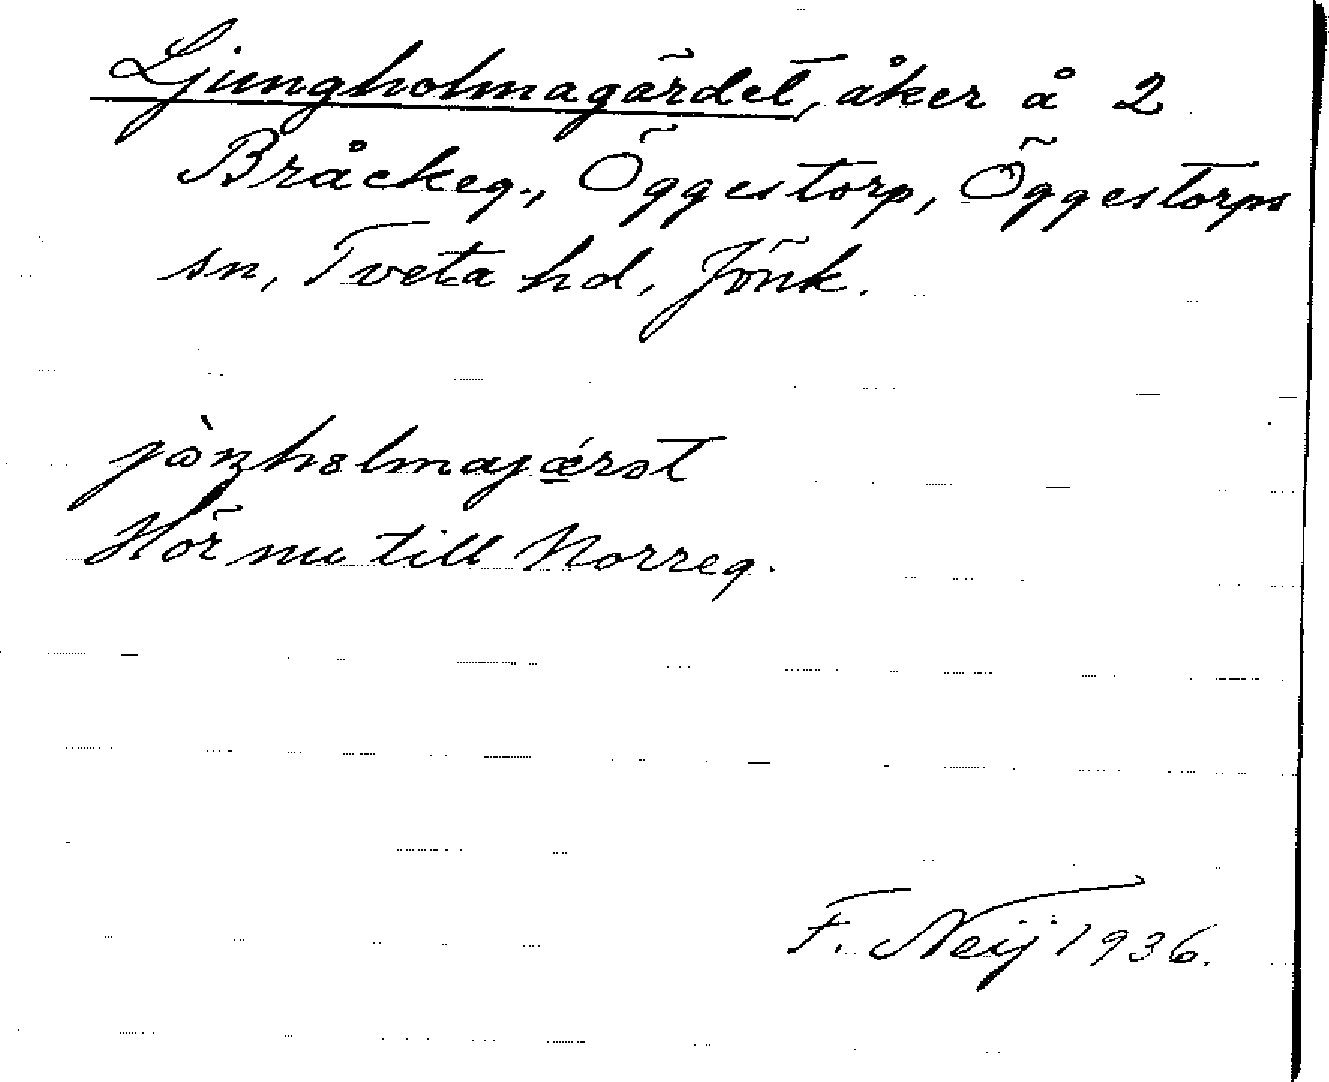 Ljungholmagärdet, åker å 2
Bråckeg., Öggestorp, Öggestorps
sn, Tveta hd, Jönk.
Hör nu till Norreg.
F. Neij 1936.